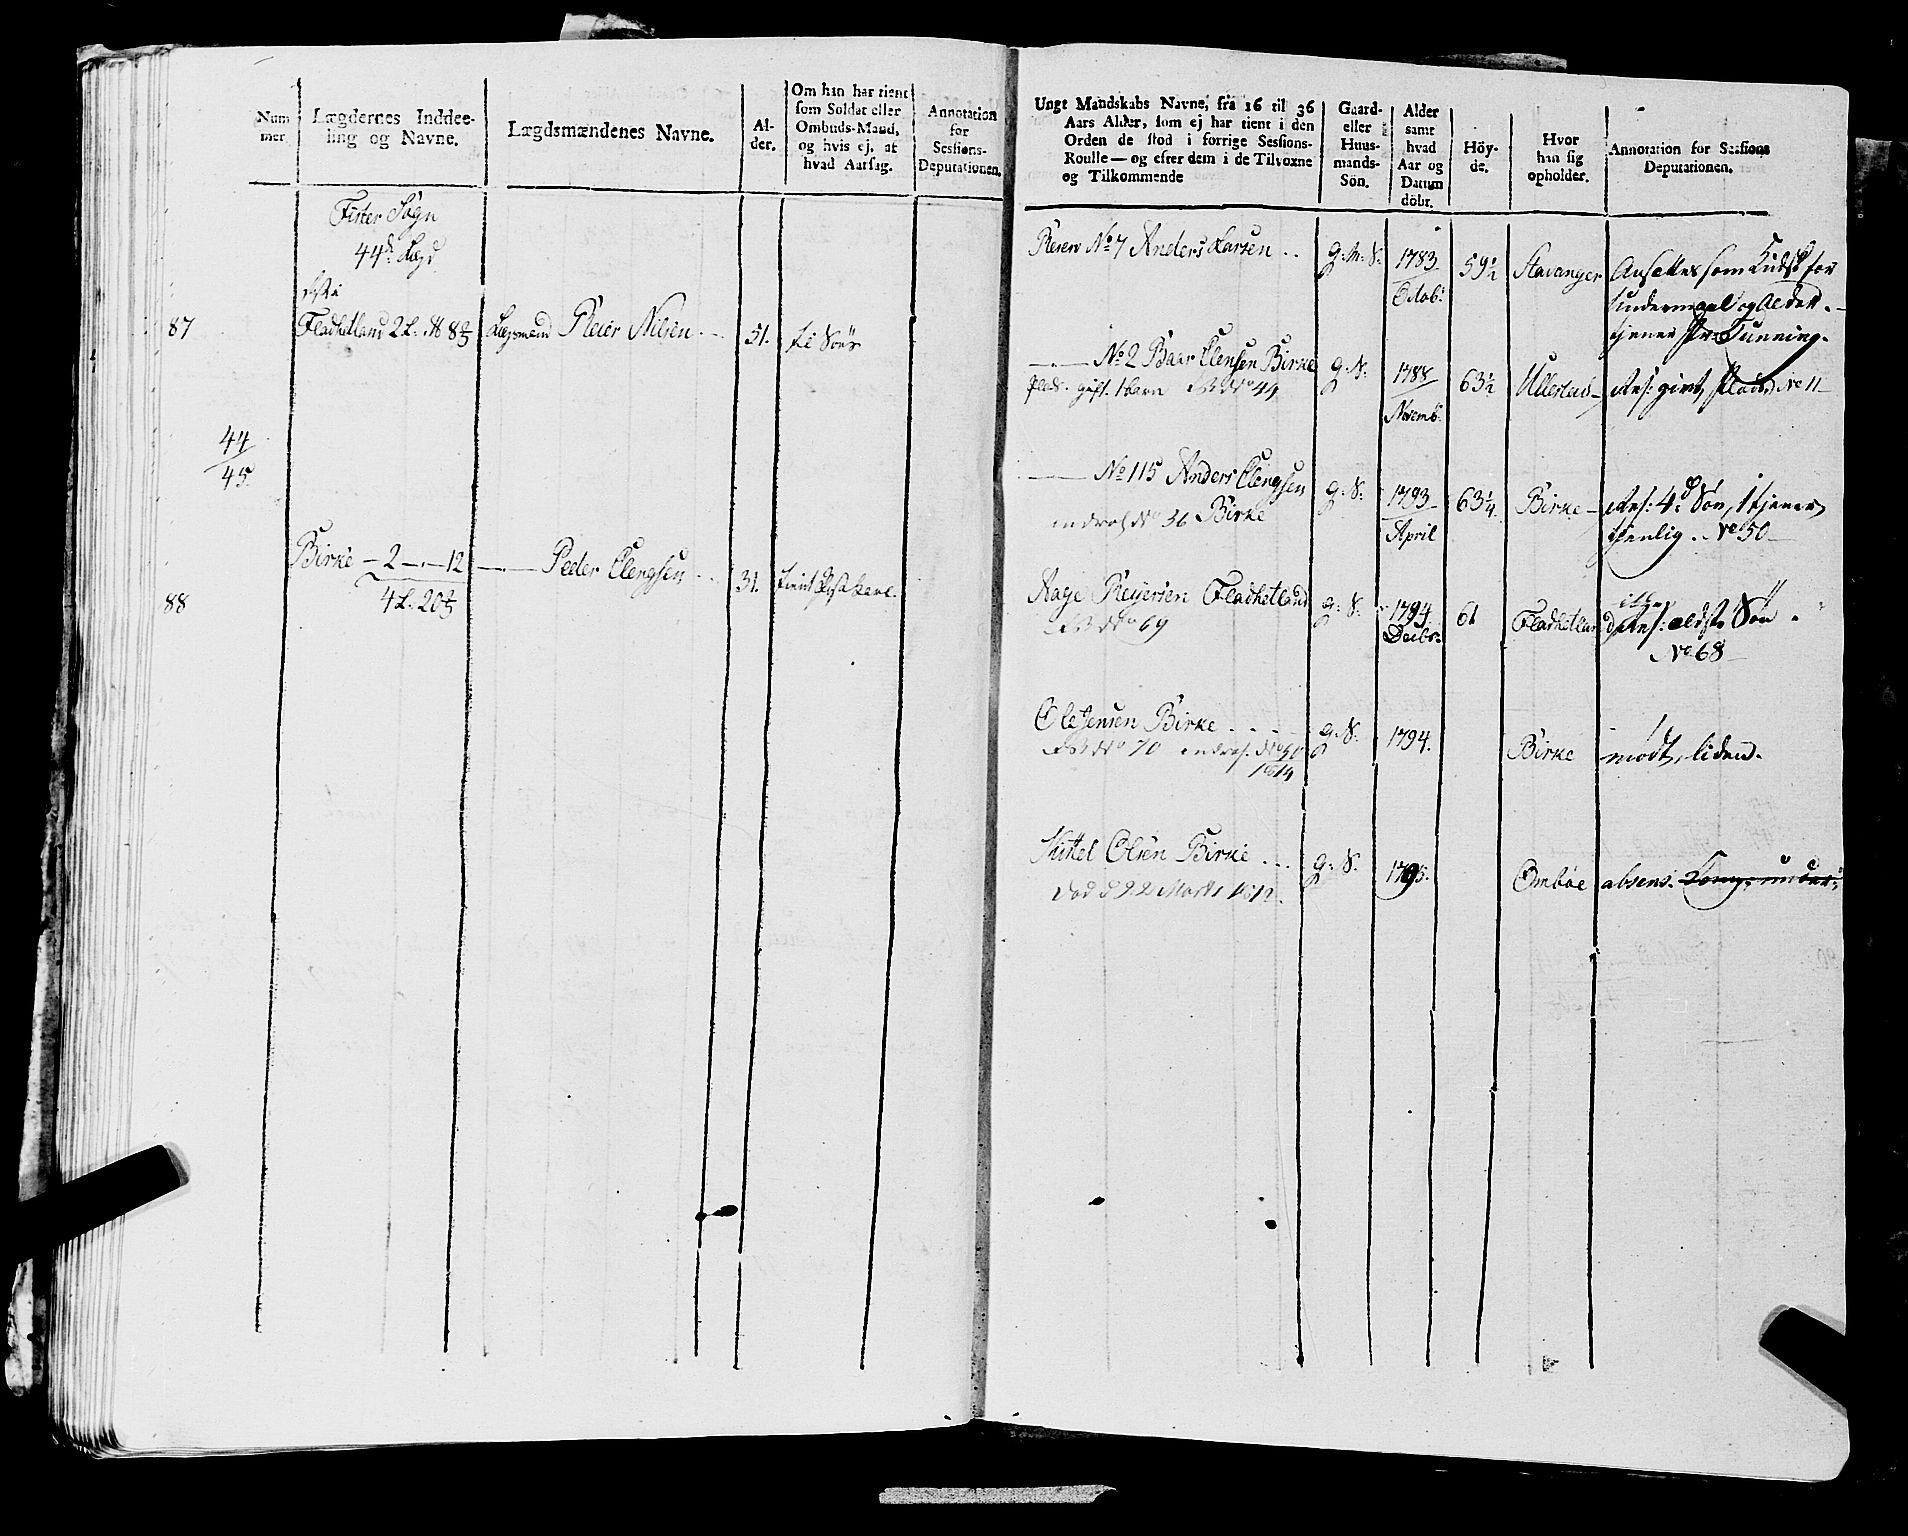 Num
mer
Lægdernes Inddee-
ling og Navne.
Lægdsmændenes Navne.
Al-
der.
Om han har tient
som Soldat eller
Ombuds-Mand,
og hvis ej, af
hvad Aarsag.
Annotation
for
Sessions-
Deputationen.
Fister Sogn
44de Lægd
87
Fladhetland 2 L.
Lægsmand Reier Nilsen
51.
44
45.
Birke - 2 - " - 12
Peder Elengsen
31.
88
Ungt Mandskabs Navne, fra 16 til 36
Aars Alder, som ej har tient i den
Orden de stod i forrige Sessions-
Roulle — og efter dem i de Tilvoxne
og Tilkommende
Gaard-
eller
Huus-
mands-
Sön.
Alder
samt
hvad
Aar og
Datum
döbt.
Höy-
de.
Hvor
han sig
opholder.
Annotation for Sessions
Deputationen.
Reserv No 7 Anders Larsen
G. M. S.
1783
Octob:
59½
Stavanger
Ansættes som Kudsk for
Undermaal og Alder.
tjener Hr: Tunning.
No 2 Baar Elensen Birke
gift. 1 barn
G. S:
1788
Novemb.
63½
Res: givt, No 11
No 115 Anders Elengsen
Birke
No 36
G: S:
1793
April
63¼
Birke
Res: 4de Søn, 1 tjener,
tjenlig. No 50
Aage Reijersen Fladhetland
No 69
G: S.
1794
Decbr.
61
Fladhetland
Res: ældste Søn
No 68
Ole Jensen Birke
No 70
No 50
1814
G. S.
1794.
Birke
mødt, liden.
Kittel Olsen Birke
Død d 22 Marts 1812.
G: S.
1795.
Ombøe
absens.